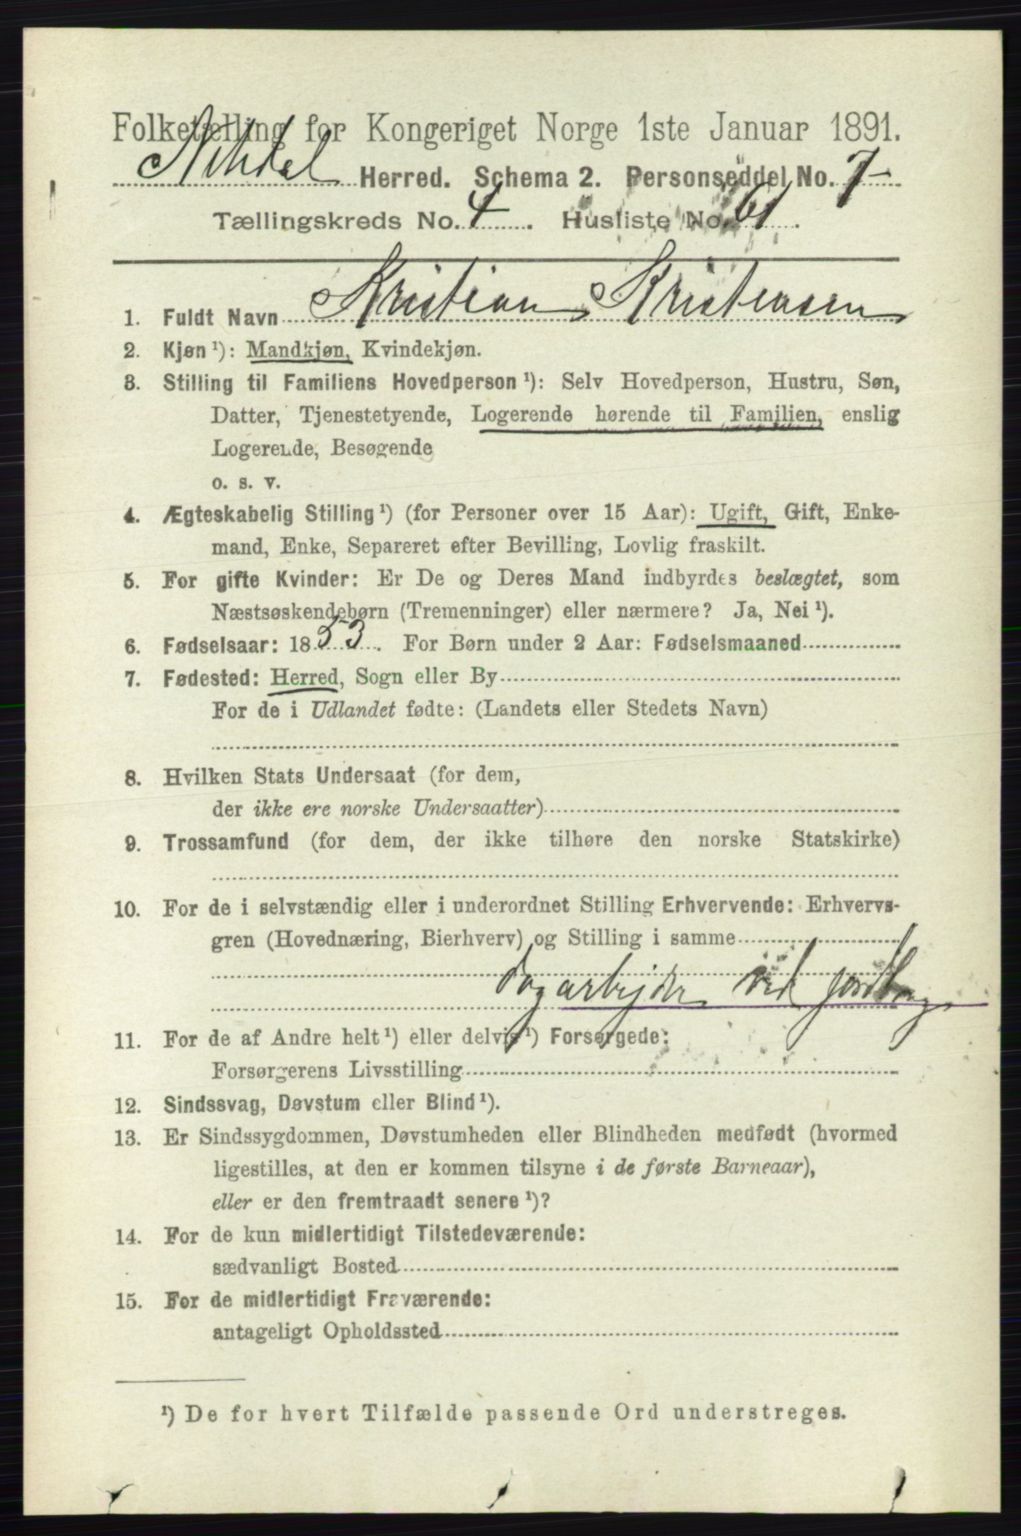 Folketælling for Kongeriget Norge 1ste Januar 1891.
Nitedal Herred. Schema 2. Personseddel No. 7
Tællingskreds No. 4. Husliste No. 61.
1. Fuldt Navn Kristian Kristensen
2. Kjøn ¹): Mandkjøn, Kvindekjøn.
3. Stilling til Familiens Hovedperson ¹): Selv Hovedperson, Hustru, Søn,
Datter, Tjenestetyende, Logerende hørende til Familien, enslig
Logerende, Besøgende
o. s. v.
4. Ægteskabelig Stilling ¹) (for Personer over 15 Aar): Ugift, Gift, Enke-
mand, Enke, Separeret efter Bevilling, Lovlig fraskilt.
5. For gifte Kvinder: Er De og Deres Mand indbyrdes beslægtet, som
Næstsøskendebørn (Tremenninger) eller nærmere? Ja, Nei ¹).
6. Fødselsaar: 1853. For Børn under 2 Aar: Fødselsmaaned
7. Fødested: Herred, Sogn eller By
For de i Udlandet fødte: (Landets eller Stedets Navn)
8. Hvilken Stats Undersaat (for dem,
der ikke ere norske Undersaatter)
9. Trossamfund (for dem, der ikke tilhøre den norske Statskirke)
10. For de i selvstændig eller i underordnet Stilling Erhvervende: Erhvervs-
gren (Hovednæring, Bierhverv) og Stilling i samme
dagarbejder ved jordbrug
11. For de af Andre helt ¹) eller delvis ¹) Forsørgede:
Forsørgerens Livsstilling
12. Sindssvag, Døvstum eller Blind ¹).
13. Er Sindssygdommen, Døvstumheden eller Blindheden medfødt (hvormed
ligestilles, at den er kommen tilsyne i de første Barneaar),
eller er den fremtraadt senere ¹)?
14. For de kun midlertidigt Tilstedeværende:
sædvanligt Bosted
15. For de midlertidigt Fraværende:
antageligt Opholdssted
¹) De for hvert Tilfælde passende Ord understreges.